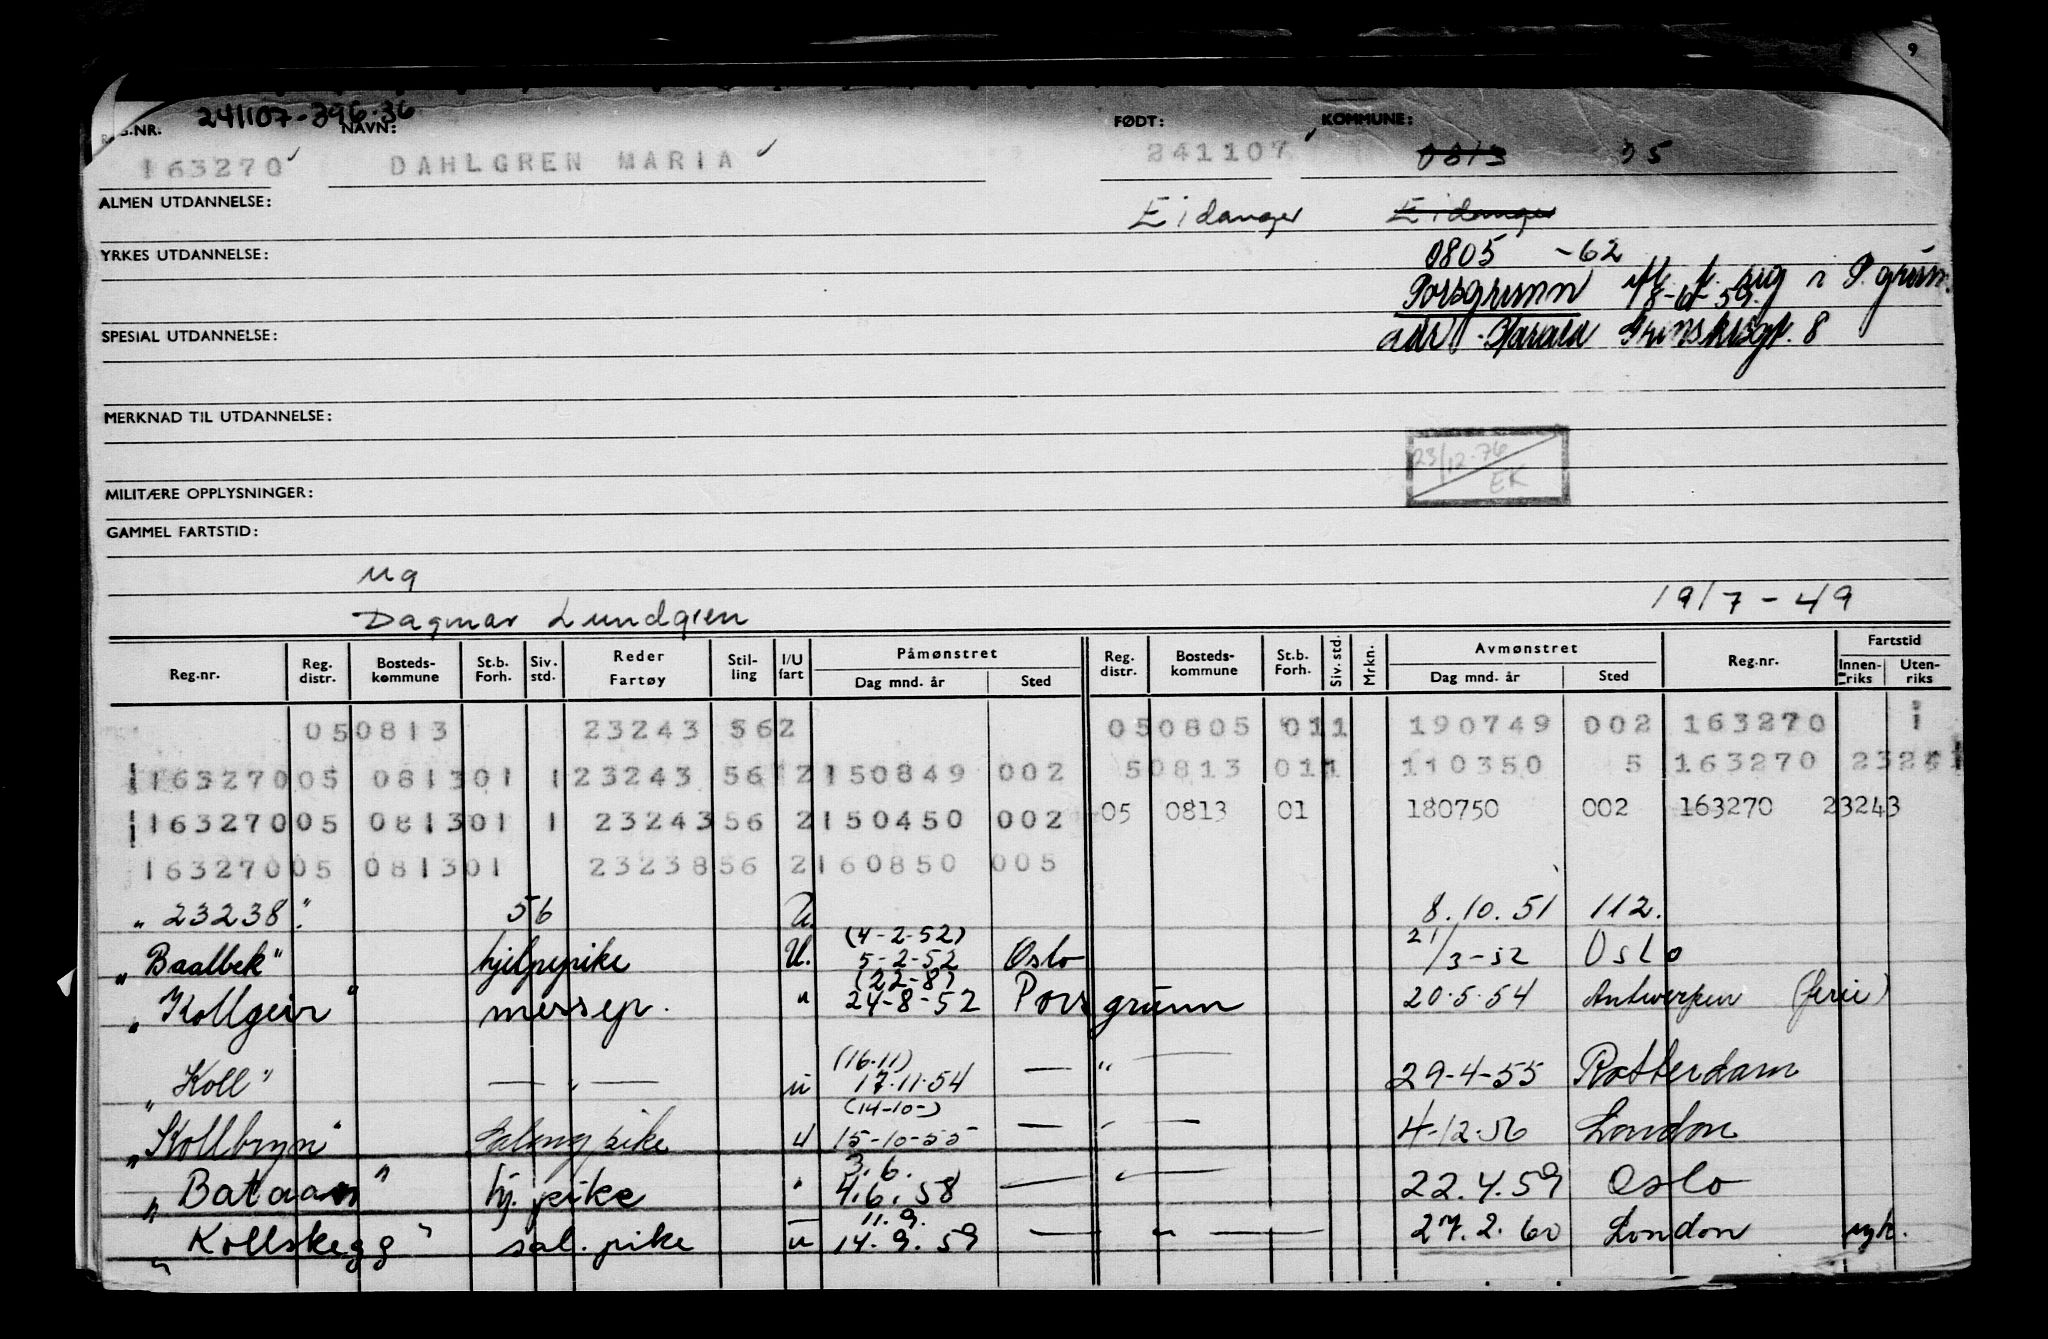 9
241107-396.36
REG.NR. NAVN: FØDT: KOMMUNE:
163270 DAHLGREN MARIA 241107 0813 35
ALMEN UTDANNELSE: Eidanger Eidanger
YRKES UTDANNELSE: 0805 -62
Porsgrunn 18-6-59. i P.grunn.
SPESIAL UTDANNELSE: adr. Harald 8
MERKNAD TIL UTDANNELSE:
23/12-76
EK
MILITÆRE OPPLYSNINGER:
GAMMEL FARTSTID:
Ug
Dagmar Lundgren 19/7-49
Reg.nr. Reg. distr. Bosteds- kommune St.b. Forh. Siv. std. Reder Fartøy Stil- ling I/U fart Påmønstret Dag mnd. år Sted Reg. distr. Bosteds- kommune St.b. Forh. Siv. std. Mrkn. Avmønstret Dag mnd. år Sted Reg.nr. Fartstid Innen- riks Uten- riks
050813 23243 562 050805 011 190749 002 163270 1
16327005 081301 1 23243 56 2 150849 002 50813 011 110350 5 163270 2324
16327005 081301 1 23243 56 2 150450 002 05 0813 01 180750 002 163270 23243
16327005 081301 23238 56 2 160850 005
"23238". 56 U. 8.10.51 112.
"Baalbek" hjelpepike U. (4-2-52) 5-2-52 Oslo 21/3-52 Oslo
"Kollgeir" messep. " (22-8) 24-8-52 Porsgrunn 20.5.54 Antwerpen (ferie)
"Koll" — " — u (16.11) 17.11.54 — " — 29-4-55 Rotterdam
"Kollbryn" Salongpike u (14-10-) 15-10-55 — " — 4-12-56 London
"Bataan" hj. pike " 3.6. 4.6.58 — " — 22.4.59 Oslo
"Kollskegg" sal. pike u 11.9. 14.9.59 — " — 27.2.60 London syk.